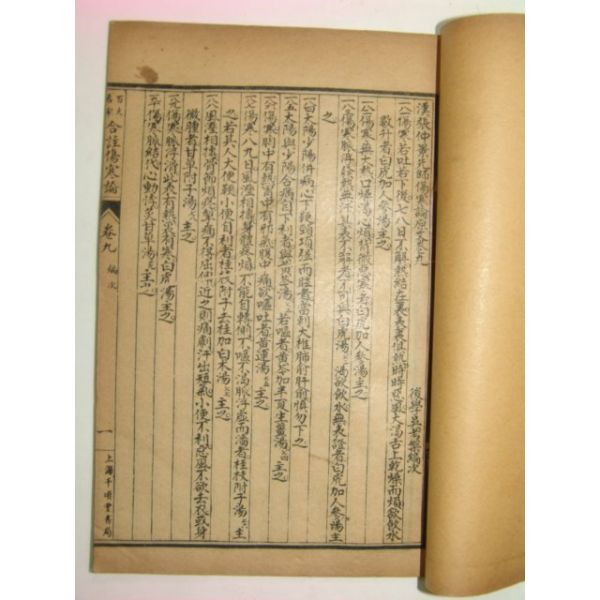 漢張仲景先師傷寒論原文卷九
後學吳考槃編次
一八一傷寒若吐若下後七八日不解熱結在裏表裏俱熱時時惡風大渴舌上乾燥而煩欲飲水
數升者白虎加人參湯主之
一八二傷寒無大熱口燥渴心煩背微惡寒者白虎加人參湯主之
一八三傷寒脈浮發熱無汗其表不解者不可與白虎湯渴欲飲水無表證者白虎加人參湯主
之
一八四太陽少陽併病心下鞕頸項強而眩者當刺大椎肺俞肝俞慎勿下之
一八五太陽與少陽合病自下利者與黃芩湯若嘔者黃芩加半夏生薑湯主之
一八六傷寒胸中有熱胃中有邪氣腹中痛欲嘔吐者黃連湯主之
一八七傷寒八九日風溼相摶身體疼煩不能自轉側不嘔不渴脈浮虛而濇者桂枝附子湯主
之若其人大便鞕小便自利者桂枝附子去桂加白朮湯主之
一八八風溼相摶骨節煩疼掣痛不得屈伸近之則痛劇汗出短氣小便不利惡風不欲去衣或身
微腫者甘草附子湯主之
一八九傷寒脈浮滑此表有熱裏有寒白虎湯主之
傷寒脈結代心動悸炙甘草湯主之
百大名家合註傷寒論
卷九
編次
一
上海千頃堂書局